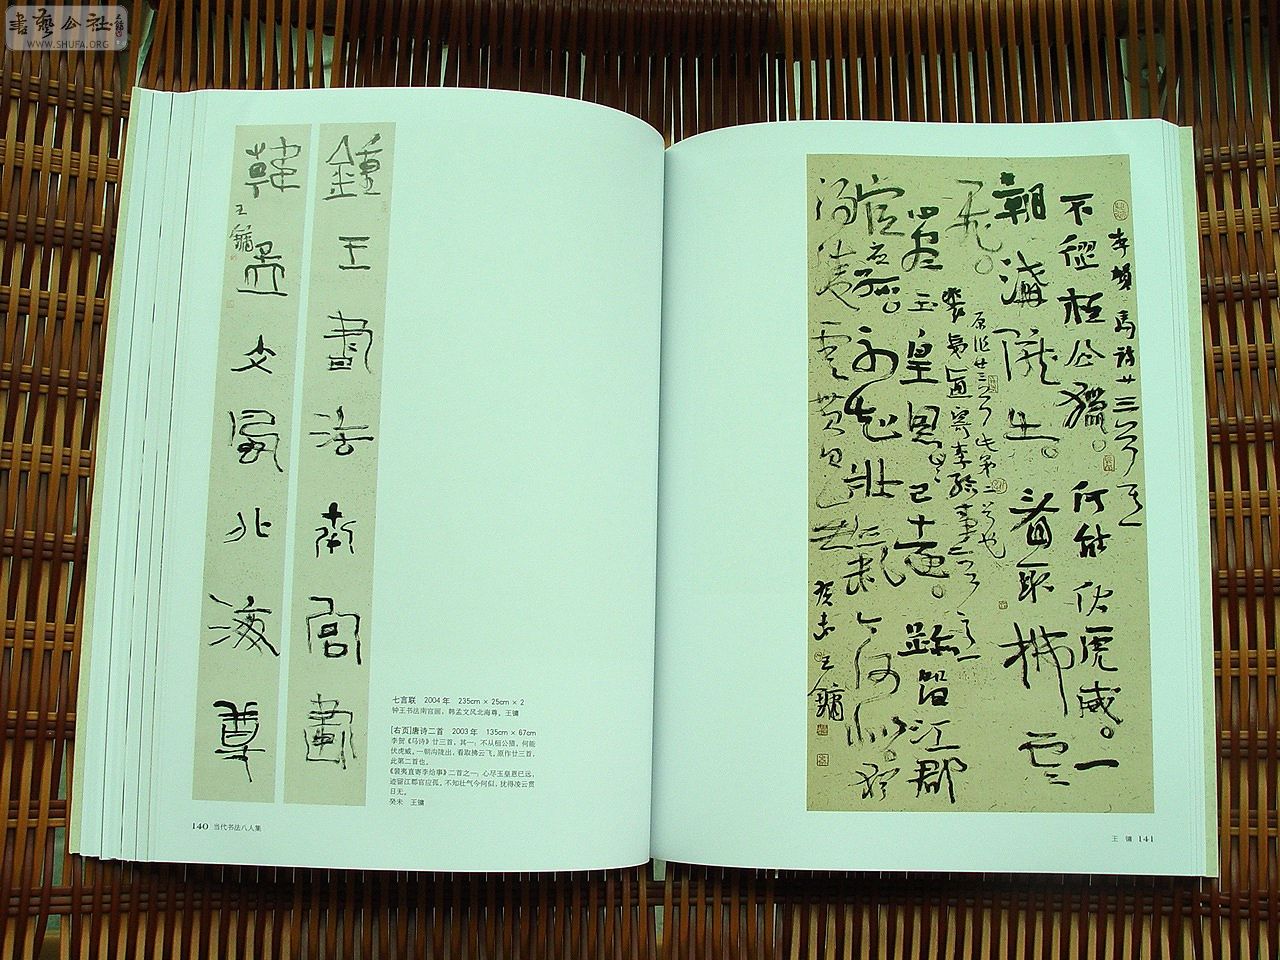 書藝公社
WWW.SHUFA.ORG
鍾王書法南宮畫
韓孟文風北海尊
王鏞
七言联 2004年 235cm × 25cm × 2
钟王书法南宫画，韩孟文风北海尊。王镛
[右页]唐诗二首 2003年 135cm × 67cm
李贺《马诗》廿三首，其一：不从桓公猎，何能
伏虎威。一朝沟陇出，看取拂云飞。原作廿三首，
此第二首也。
《裴夷直寄李给事》二首之一：心尽玉皇恩已远，
迹留江郡官应孤。不知壮气今何似，犹得凌云贯
日无。
癸未 王镛
140 当代书法八人集
不從桓公獵。何能伏虎威。一
朝溝隴出。看取拂雲
飛。
原作廿三首此第二首也
心盡玉皇恩已遠。跡留江郡
官應孤。不知壯氣今何似。猶
得凌雲貫日無
癸未王鏞
王 镛 141